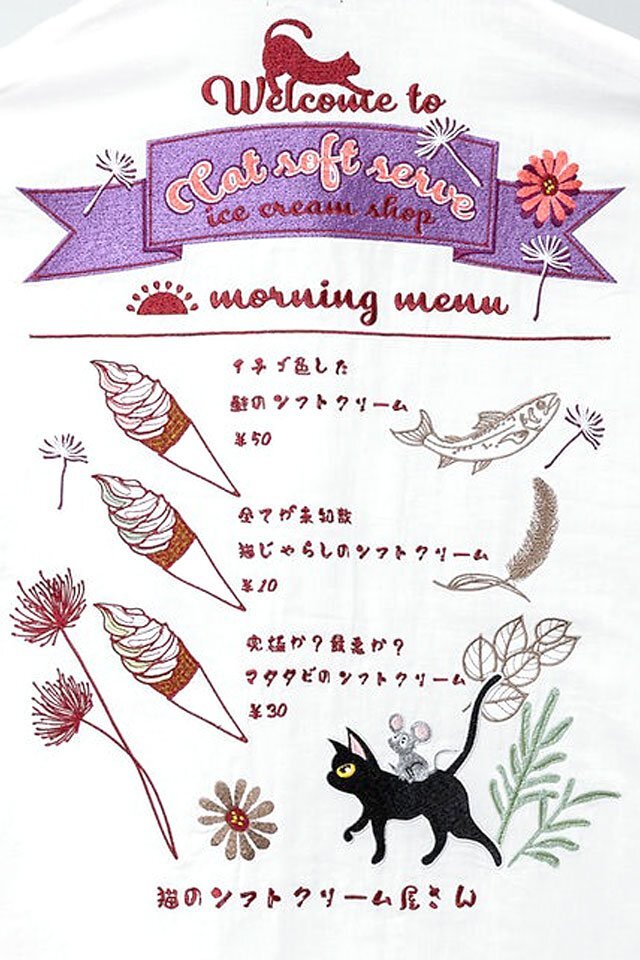 Welcome to
Cat soft serve
ice cream shop
morning menu
イチゴ色した
鮭のソフトクリーム
¥50
全てが未知数
猫じゃらしのソフトクリーム
¥10
究極か?最悪か?
マタタビのソフトクリーム
¥30
猫のソフトクリーム屋さん